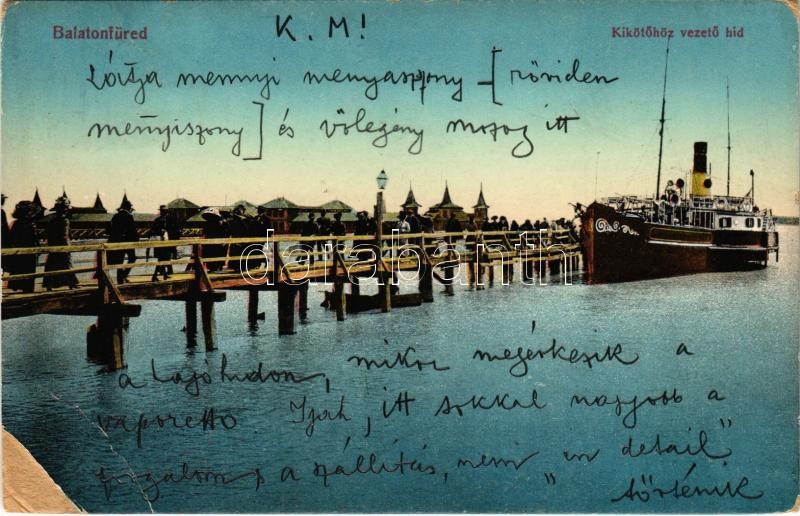 Balatonfüred
Kikötőhöz vezető hid
K. M!
Látja mennyi menyaszony - [röviden
menyiszony] és völegény mozog itt
darabanth
a hajóhidon, mikor megérkezik a
vaporetto Ijah, itt sokkal nagyobb a
forgalom, s a szállitás, nem "en detail"
történik